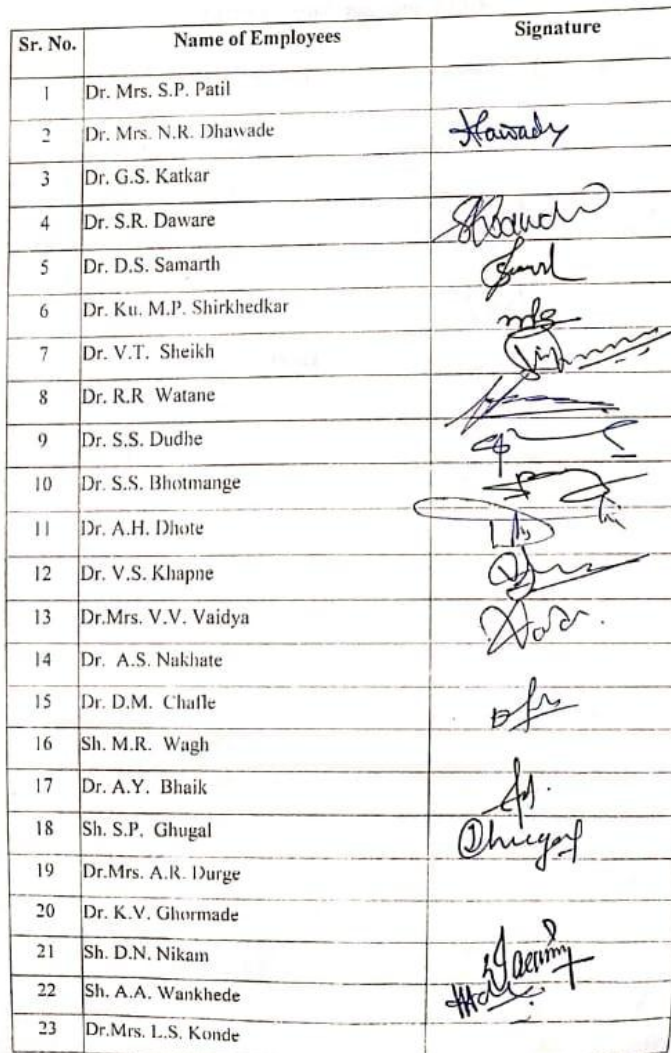 Sr. No. Name of Employees Signature
1 Dr. Mrs. S.P. Patil
2 Dr. Mrs. N.R. Dhawade
3 Dr. G.S. Katkar
4 Dr. S.R. Daware
5 Dr. D.S. Samarth
6 Dr. Ku. M.P. Shirkhedkar
7 Dr. V.T. Sheikh
8 Dr. R.R Watane
9 Dr. S.S. Dudhe
10 Dr. S.S. Bhotmange
11 Dr. A.H. Dhote
12 Dr. V.S. Khapne
13 Dr.Mrs. V.V. Vaidya
14 Dr. A.S. Nakhate
15 Dr. D.M. Chafle
16 Sh. M.R. Wagh
17 Dr. A.Y. Bhaik
18 Sh. S.P. Ghugal
19 Dr.Mrs. A.R. Durge
20 Dr. K.V. Ghormade
21 Sh. D.N. Nikam
22 Sh. A.A. Wankhede
23 Dr.Mrs. L.S. Konde